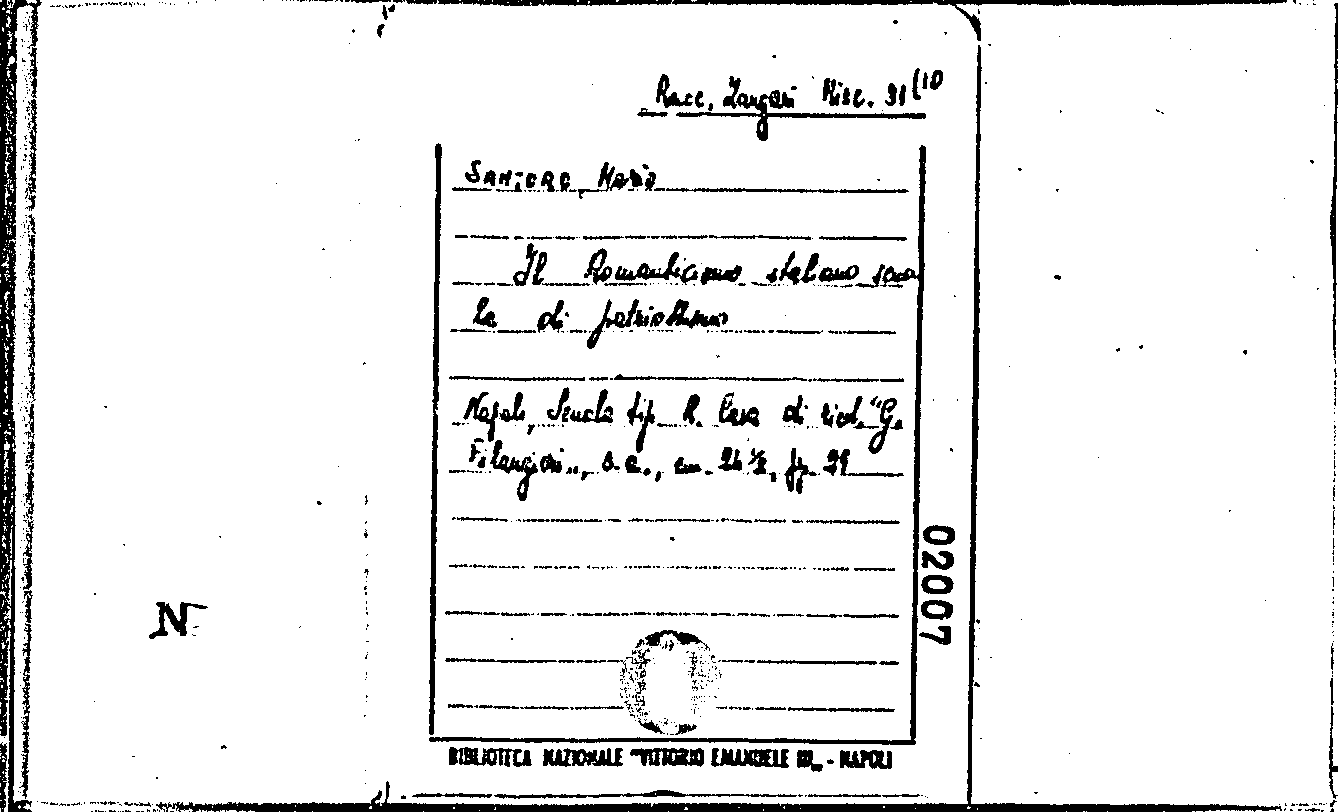 Racc. Zangari Misc. 91(10
SANTORO, Mario
Il Romanticismo italiano scuo
la di patriottismo
Napoli, Scuola tip. R. Casa di ried. "G.
Filangieri", s.a., cm. 24 ½, pp. 29
02007
N
BIBLIOTECA NAZIONALE "VITTORIO EMANUELE III" - NAPOLI